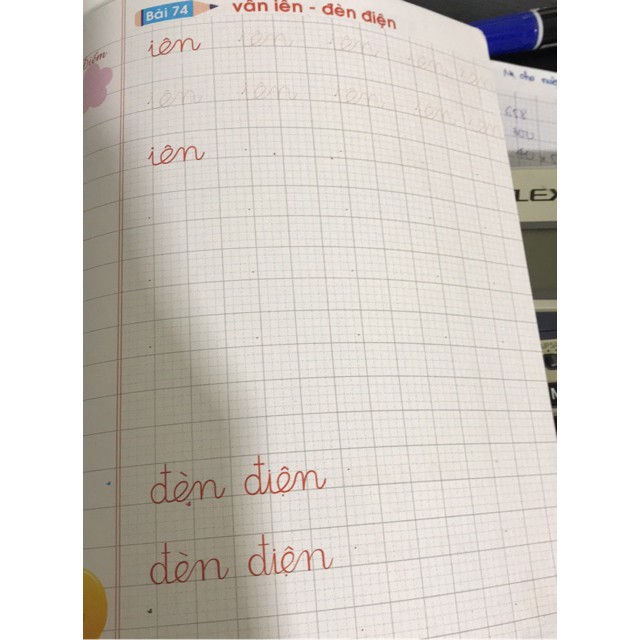 Bài 74 vần iên - đèn điện
Điểm
iên iên iên iên iên
iên iên iên iên iên
iên
đèn điện
đèn điện
658
LEX